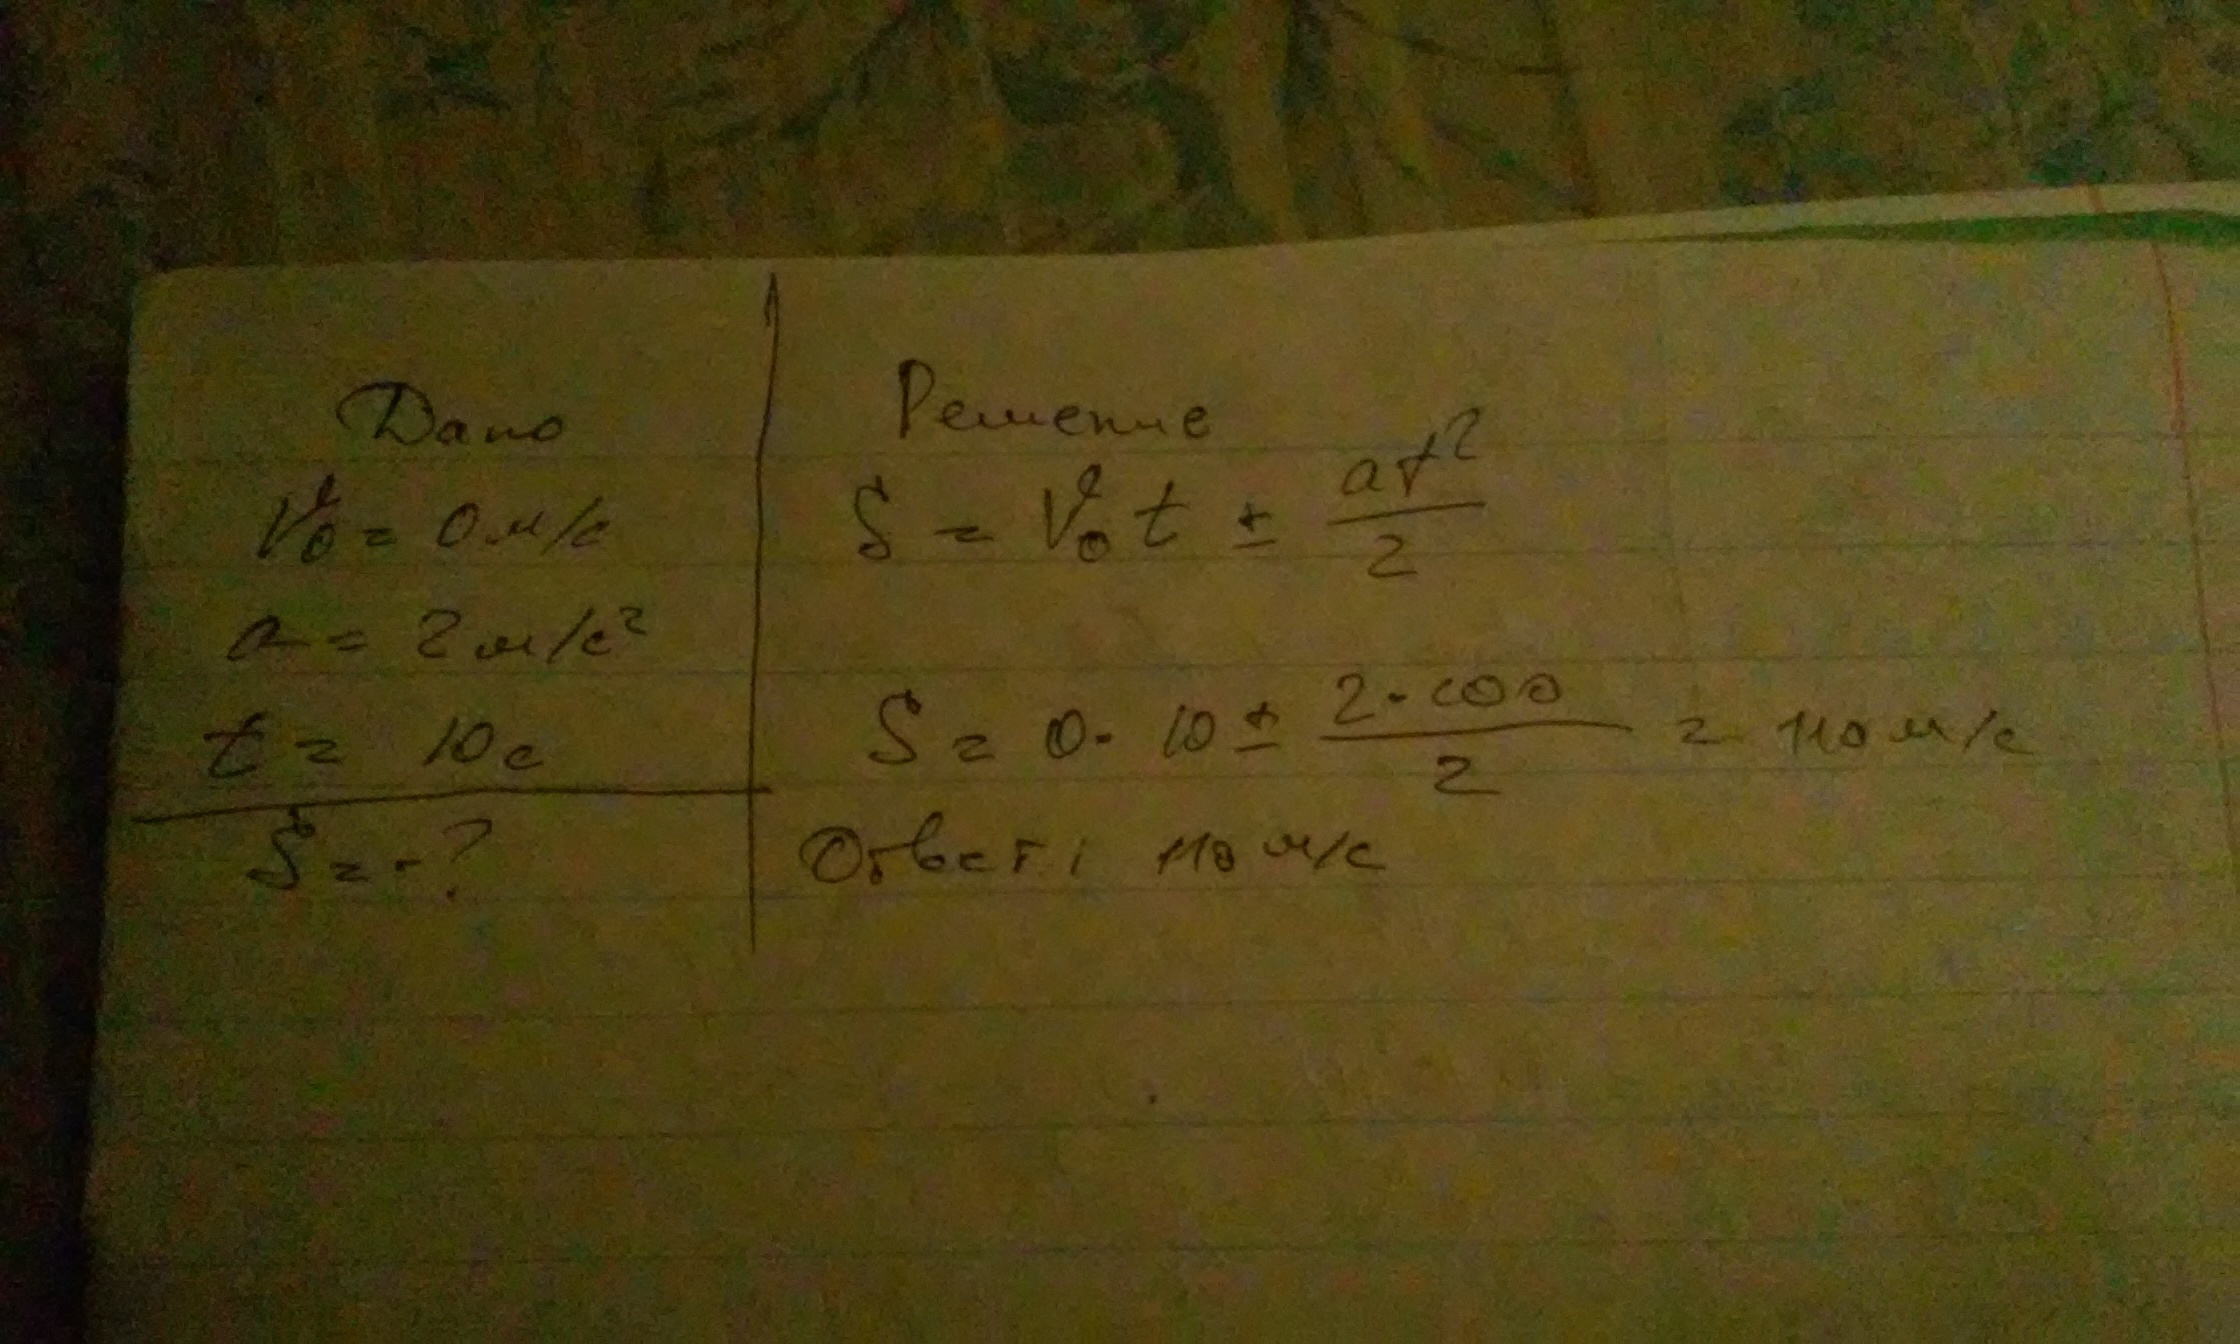 Дано
V₀ = 0 м/с
a = 2 м/с²
t = 10 с
S = - ?
Решение
S = V₀ t ± at²/2
S = 0 · 10 ± 2 · 100/2 = 110 м/с
Ответ: 110 м/с